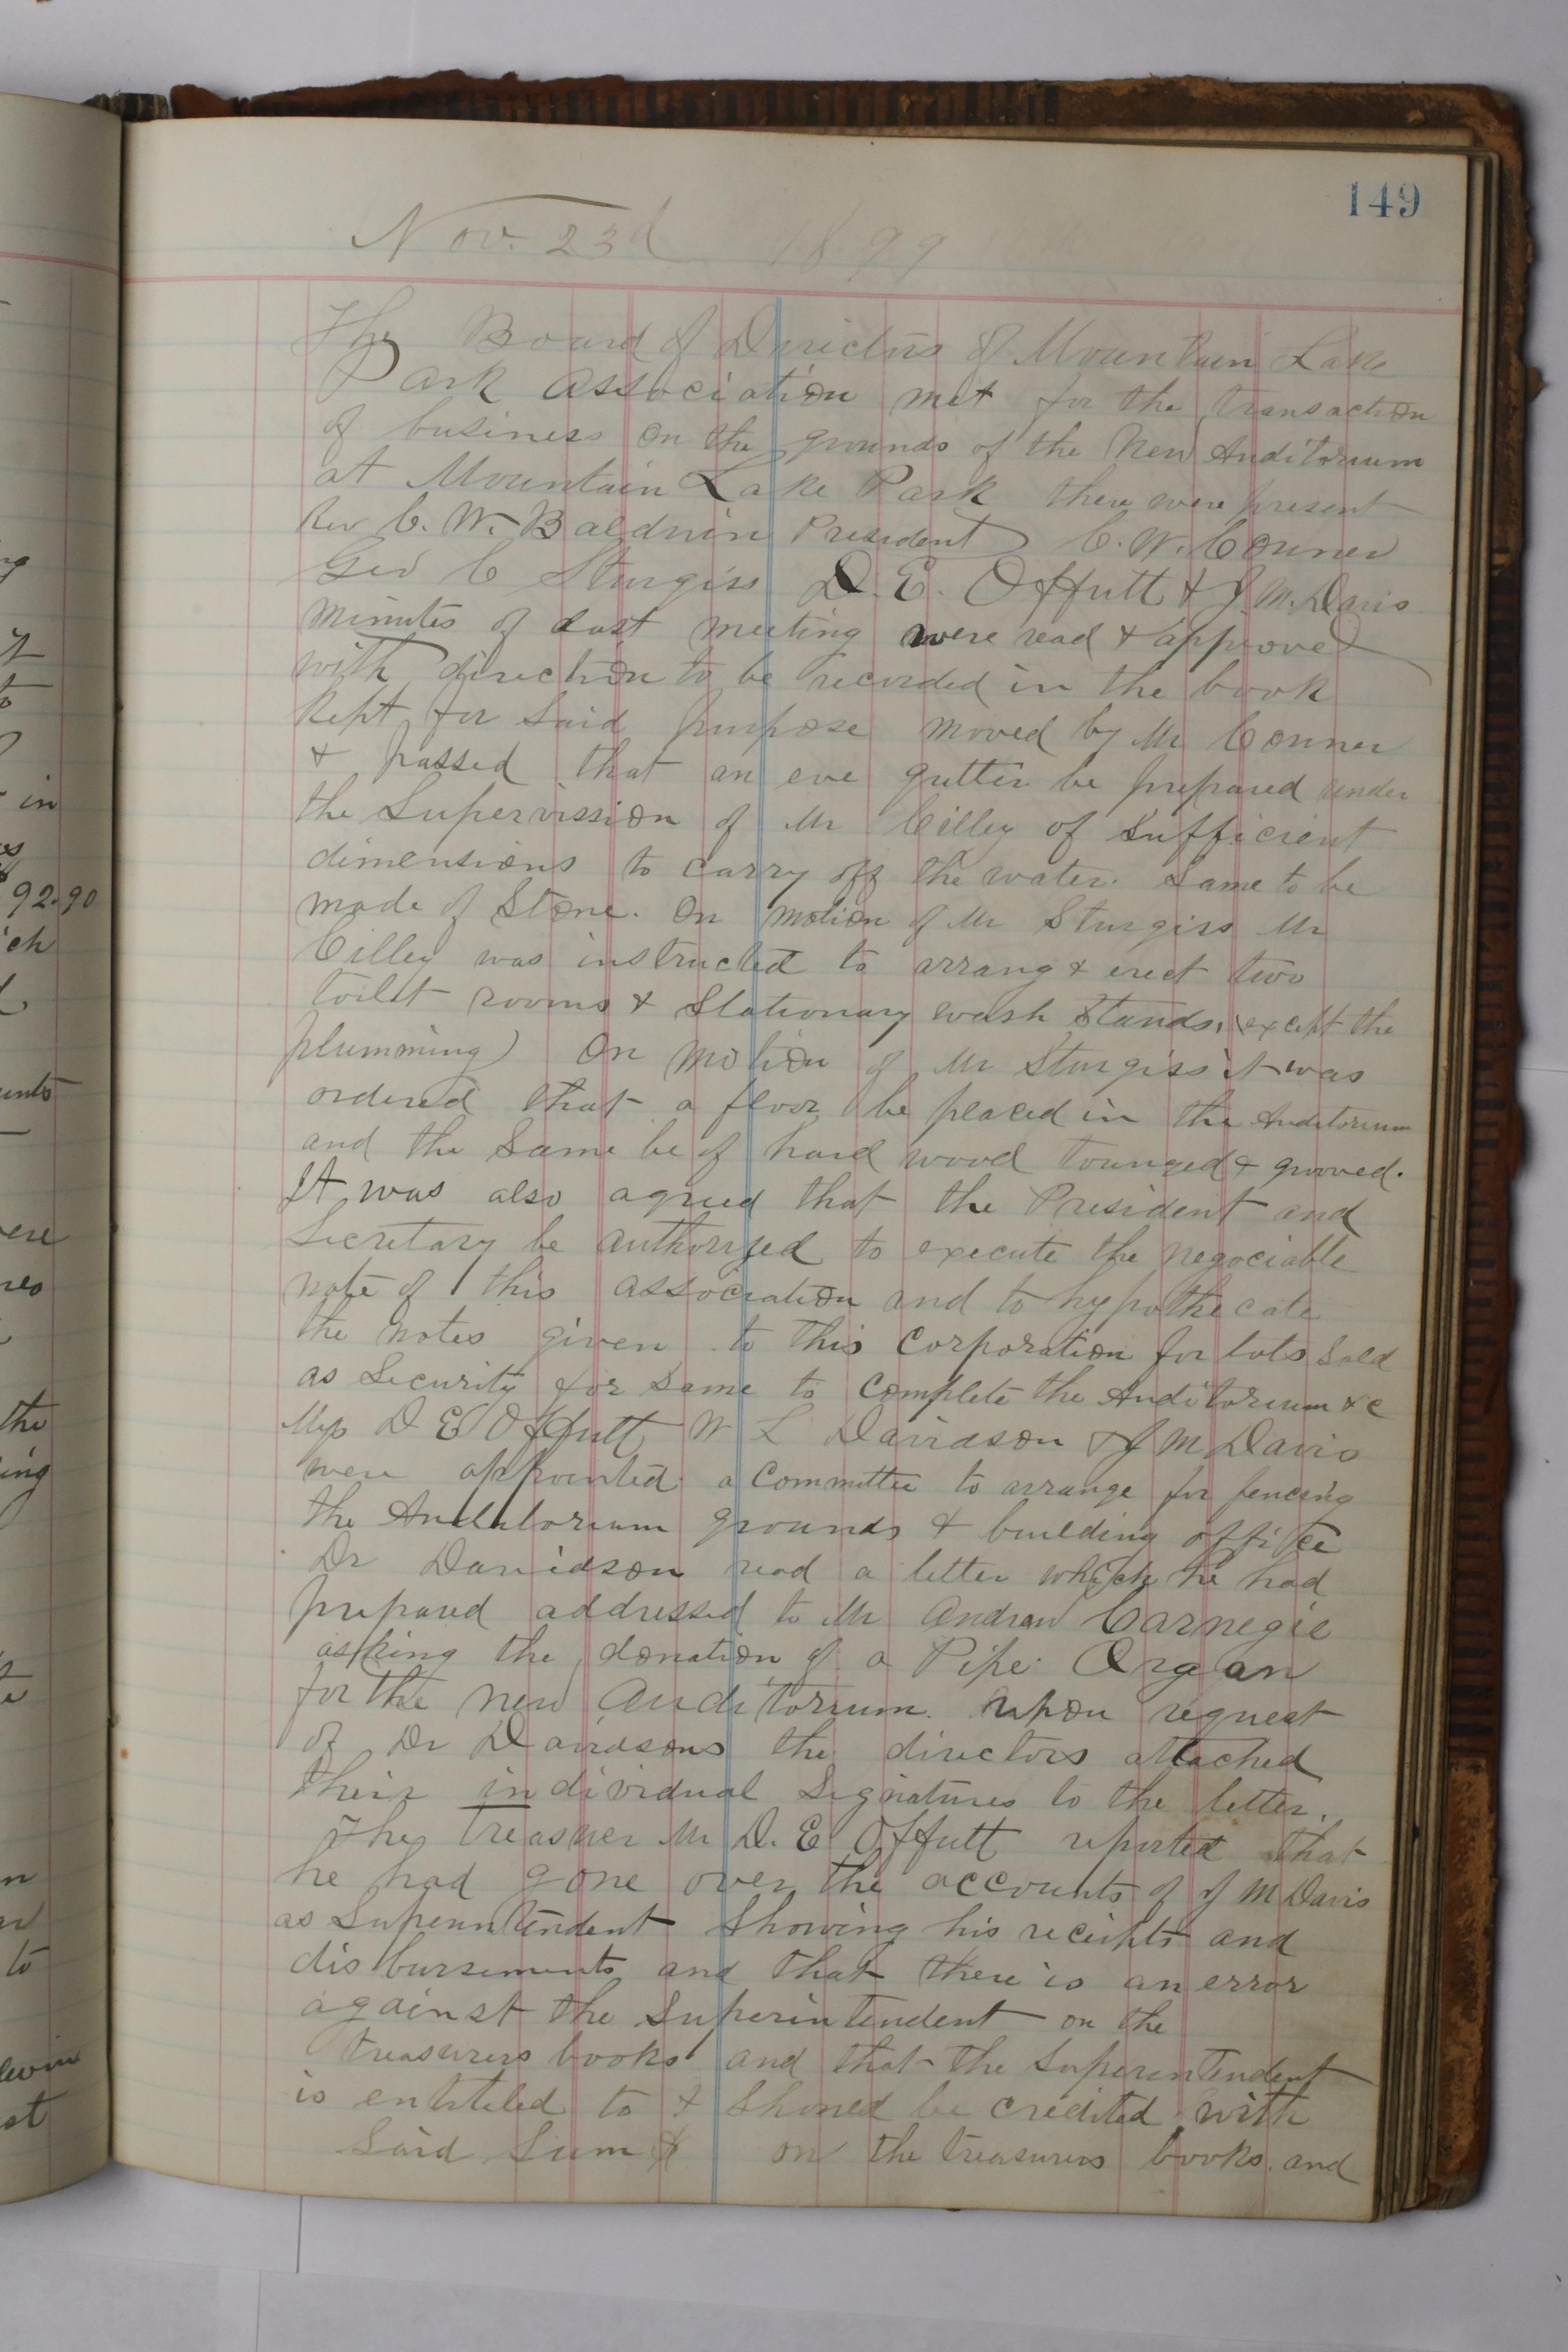 149
Nov. 23d 1899
The Board of Directors of Mountain Lake
Park Association met for the transaction
of business on the grounds of the New Auditorium
at Mountain Lake Park there were present
Rev C. W. Baldwin President C. W. Conner
Geo C Sturgiss D. E. Offutt & J. M. Davis
minutes of last meeting were read & approved
with direction to be recorded in the book
Kept for said purpose moved by Mr Conner
& passed that an eve gutter be prepared under
the Supervission of Mr Cilley of Sufficient
dimensions to carry off the water. Same to be
made of Stone. On motion of Mr Sturgiss Mr
Cilley was instructed to arrang & erect two
toilet rooms & Stationary wash Stands, (except the
plumming) On motion of Mr Sturgiss it was
ordered that a floor be placed in the Auditorium
and the Same be of hard wood tounged & grooved.
It was also agreed that the President and
Secretary be authorized to execute the negociable
note of this association and to hypothecate
the notes given to this Corporation for lots Sold
as Security for same to Complete the Auditorium &c
D E Offutt W L Davidson & J M Davis
were appointed a Committee to arrange for fencing
the Auditorium grounds & building office
Dr Davidson read a letter which he had
prepared addressed to Mr Andrew Carnegie
asking the donation of a Pipe Organ
for the new Auditorium. upon request
of Dr Davidsons the directors attached
their individual Signatures to the letter.
The treasuer Mr D. E Offutt reported that
he had gone over the accounts of J M Davis
as Superintendent Showing his receipts and
disbursements and that there is an error
against the Superintendent on the
treasurers books and that the Superintendent
is entitled to & Should be credited with
Said Sum on the treasurers books. and
in
92.90
ich
the
ing
to
st